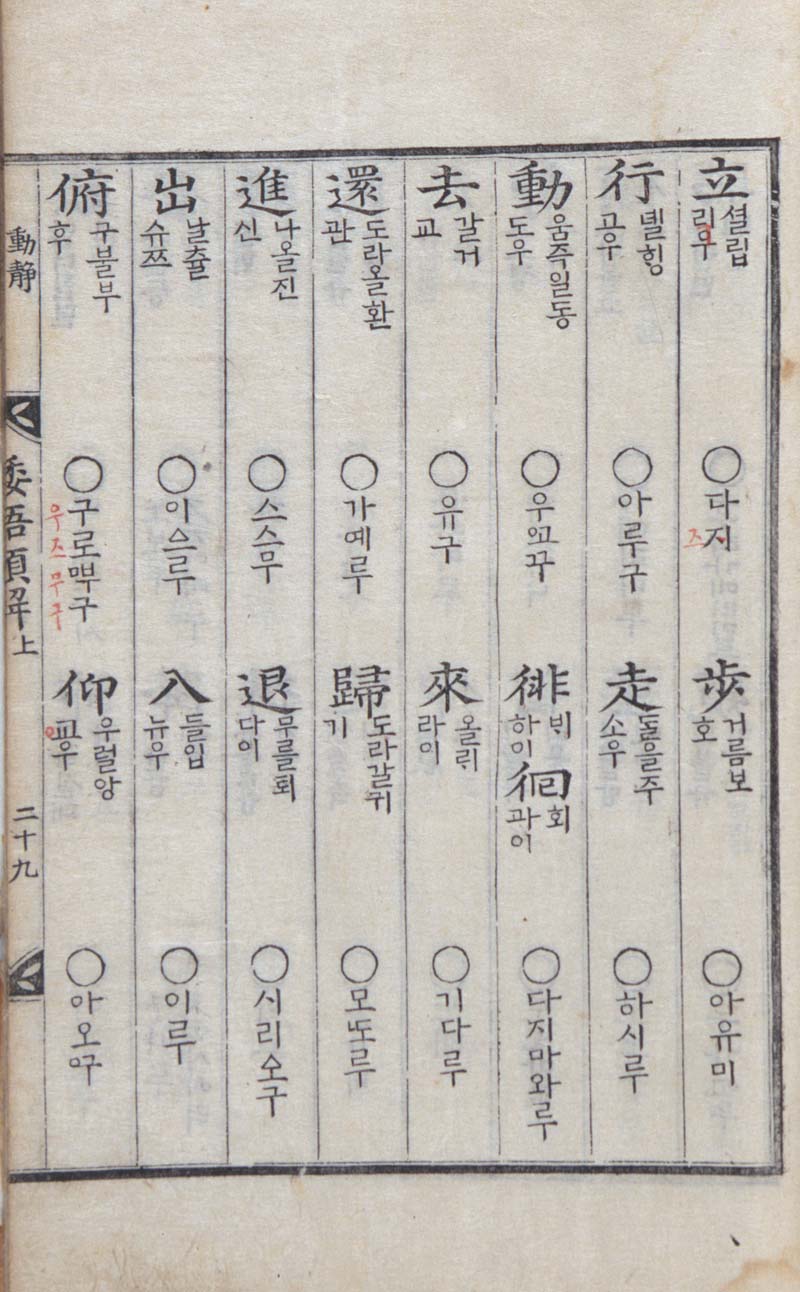 立 셜립 리우
○다지 즈
歩 거름보 호
○아유미
行 녤ᄒᆡᆼ 고우
○아루구
走 ᄃᆞᆯ을주 소우
○하시루
動 움즉일동 도우
徘 ᄇᆡ 하이 徊 회 과이
○다지마와루
去 갈거 교
○유구
來 올ᄅᆡ 라이
○기다루
還 도라올환 관
○가예루
歸 도라갈귀 기
進 나올진 신
○스스무
退 무를퇴 다이
○시리소구
出 날츌 슈쯔
入 들입 뉴우
○이루
俯 구불부 후
우즈무구
仰 우럴앙 교우
動静
倭語類解上
二十九